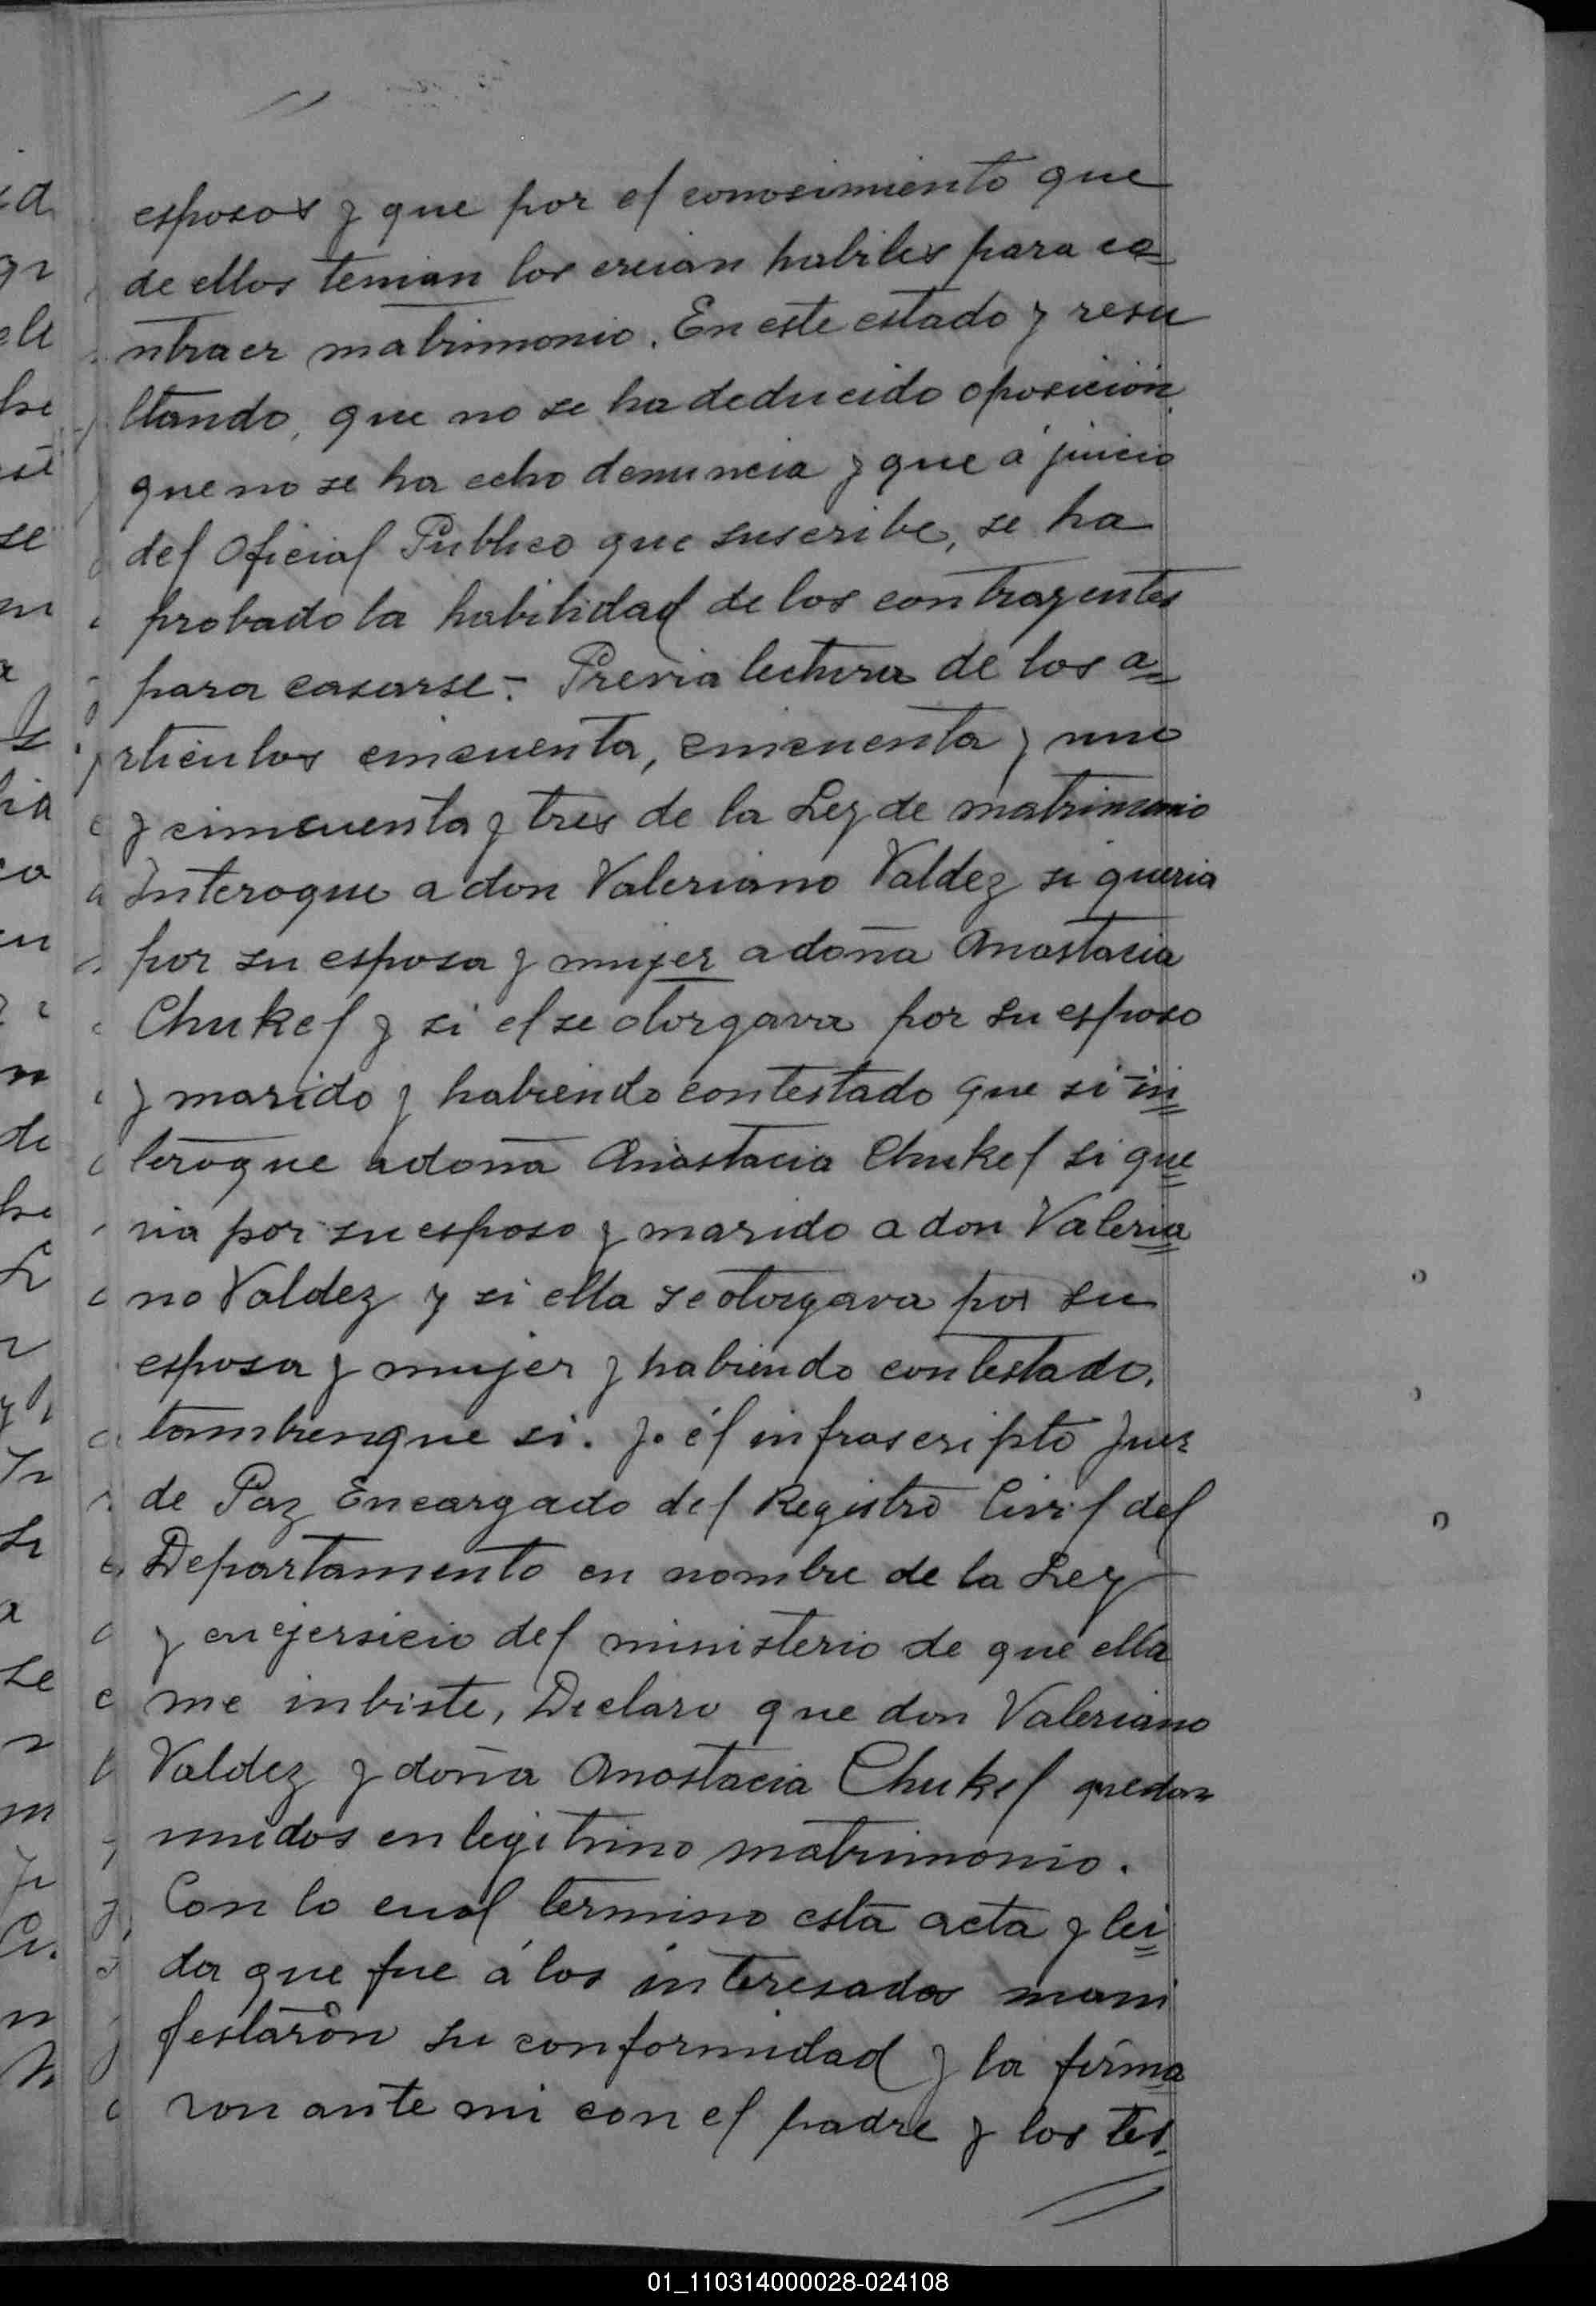 esposos y que por el conosimiento que
de ellos tenian los creian habiles para co=
ntraer matrimonio. En este estado y resu
ltando, que no se ha deducido oposición,
que no se ha echo denuncia y que á juicio
del Oficial Publico que suscribe, se ha
probado la habilidad de los contrayentes
para casarse.- Previa lectura de los a=
rticulos cincuenta, cincuenta y uno
y cimcuenta y tres de la Ley de matrimonio
Interogue a don Valeriano Valdez si queria
por su esposa y mujer a doña Anastacia
Chukel y si el se otorgava por su esposo
y marido y habiendo contestado que si in=
teroque a doña Anastacia Chukel si que=
ria por su esposo y marido a don Valeria=
no Valdez y si ella se otorgava por su
esposa y mujer y habiendo contestado,
tambien que si. Yo él infrascripto Juez
de Paz Encargado del Registro Civil del
Departamento en nombre de la Ley
y en ejersicio del ministerio de que ella
me inbiste, Declaro que don Valeriano
Valdez y doña Anastacia Chukel quedan
unidos en legitimo matrimonio.
Con lo cual termino esta acta y lei=
da que fue á los interesados mani
festarón su conformidad y la firma
ron ante mi con el padre y los tes.
01_110314000028-024108